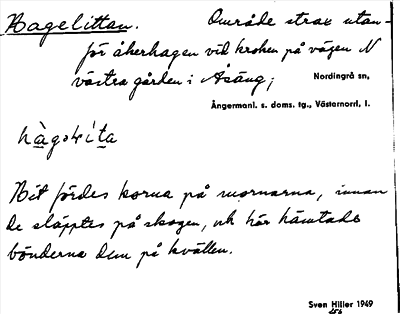 Hagelittan. Område strax utan-
för åkerhagen vid kroken på vägen N
västra gården i Åsäng;
Nordingrå sn,
Ångermanl. s. doms. tg., Västernorrl. l.
Hit fördes korna på mornarna, innan
de släpptes på skogen, och här hämtade
bönderna dem på kvällen.
Sven Hiller 1949